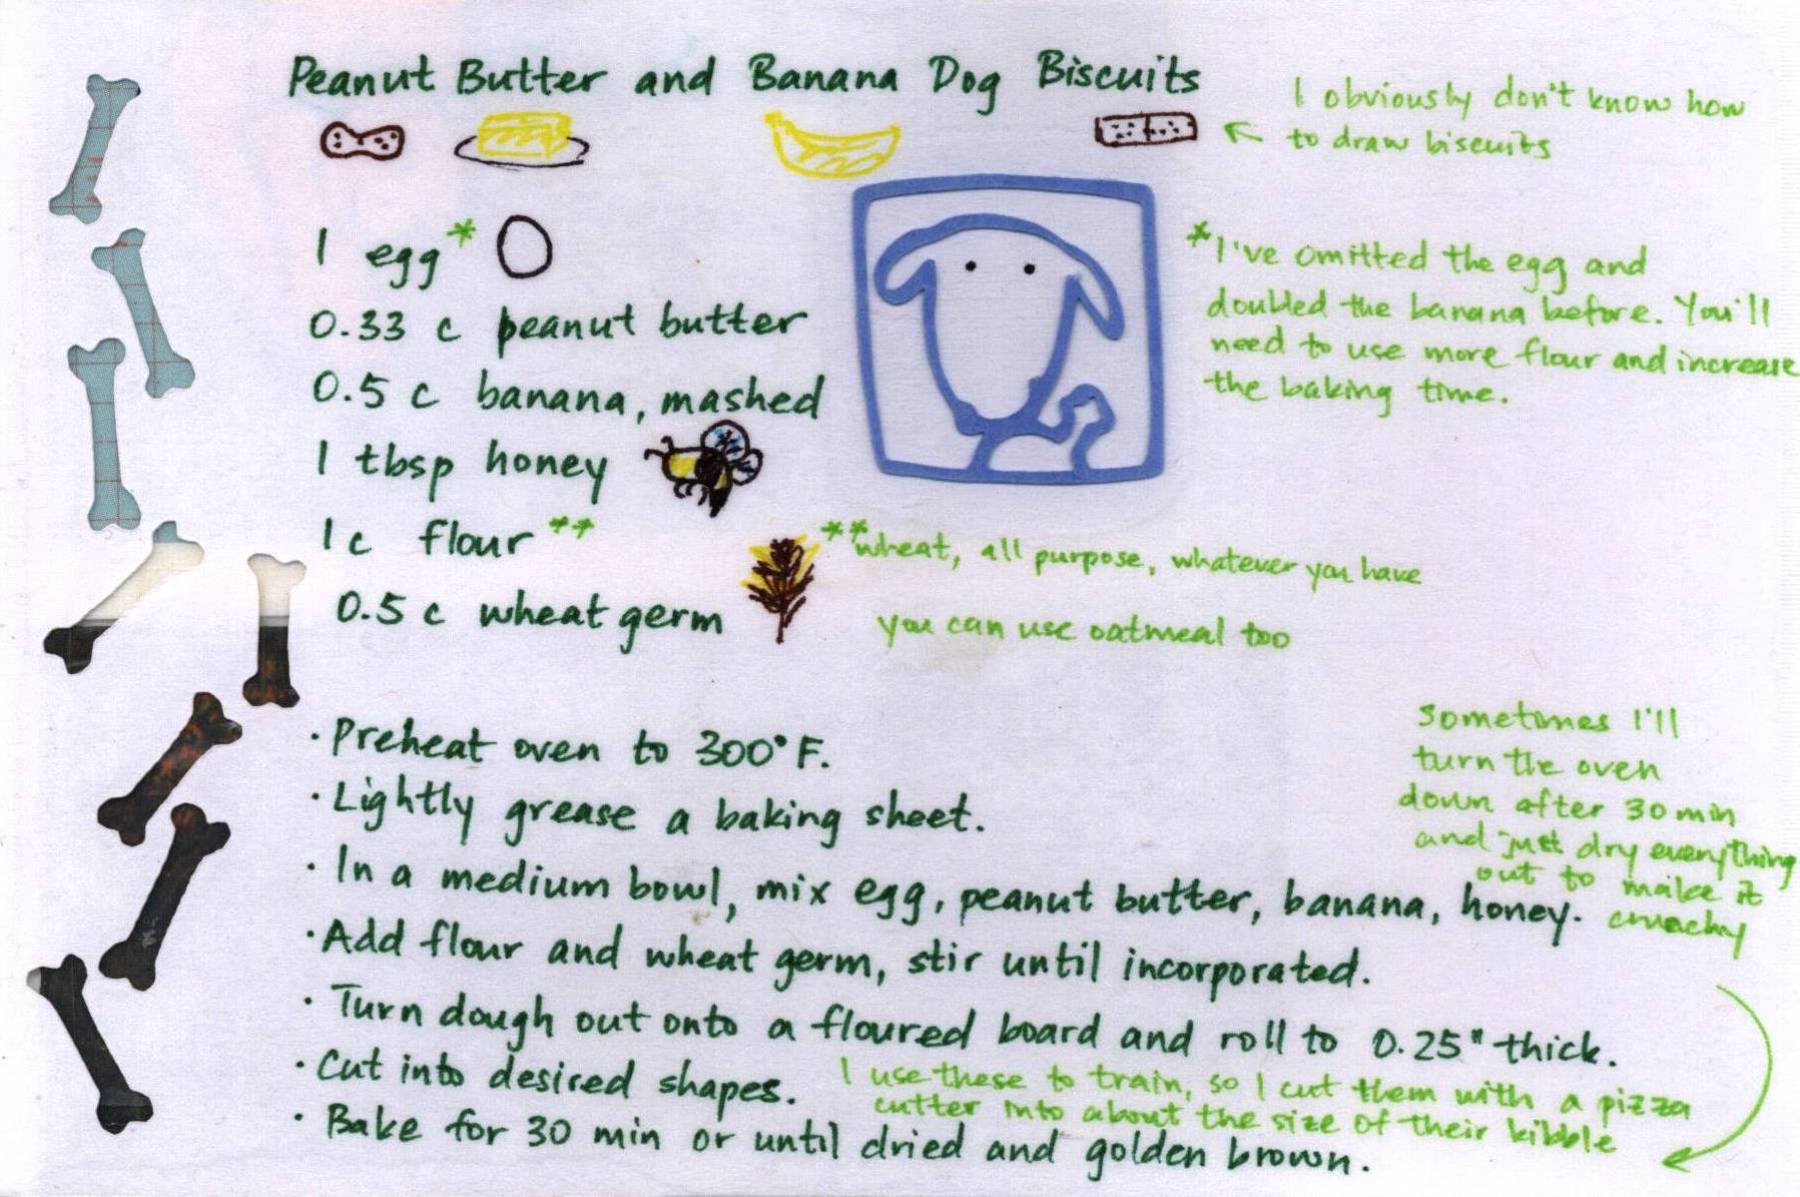 Peanut Butter and Banana Dog Biscuits
I obviously don't know how
to draw biscuits
1 egg*
0.33 c peanut butter
0.5 c banana, mashed
1 tbsp honey
1 c flour**
0.5 c wheat germ
*I've omitted the egg and
doubled the banana before. You'll
need to use more flour and increase
the baking time.
**wheat, all purpose, whatever you have
you can use oatmeal too
· Preheat oven to 300°F.
· Lightly grease a baking sheet.
· In a medium bowl, mix egg, peanut butter, banana, honey.
· Add flour and wheat germ, stir until incorporated.
· Turn dough out onto a floured board and roll to 0.25" thick.
· Cut into desired shapes.
I use these to train, so I cut them with a pizza
cutter into about the size of their kibble
· Bake for 30 min or until dried and golden brown.
Sometimes I'll
turn the oven
down after 30 min
and just dry everything
out to make it
crunchy